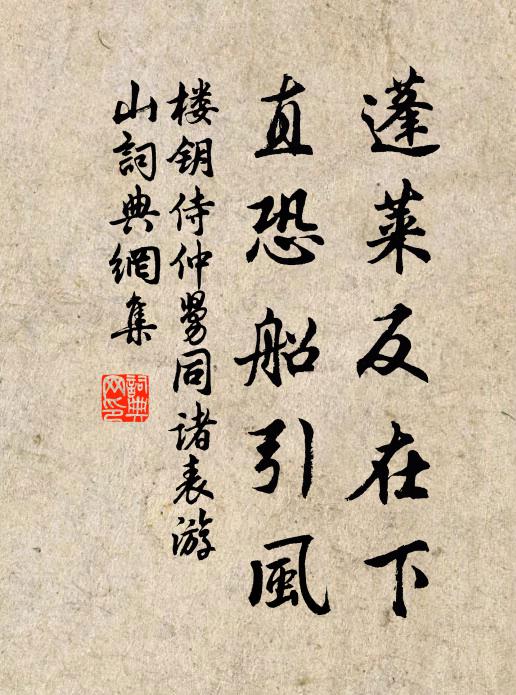 蓬萊反在下
直恐船引風
楼钥侍仲舅同诸表游
山詞典網集
詞典网印